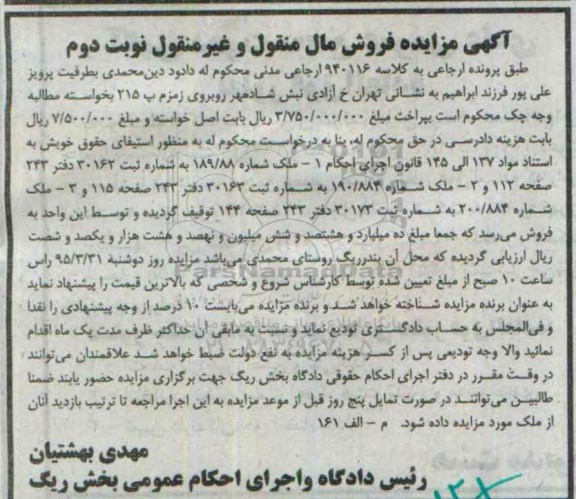 آگهی مزایده فروش مال منقول و غیرمنقول نوبت دوم
طبق پرونده ارجاعی به کلاسه ۹۴۰۱۱۶ ارجاعی مدنی محکوم له دادود دین‌محمدی بطرفیت پرویز
علی پور فرزند ابراهیم به نشانی تهران خ آزادی نبش شادمهر روبروی زمزم پ ۲۱۵ بخواسته مطالبه
وجه چک محکوم است بپراخت مبلغ ۳/۷۵۰/۰۰۰/۰۰۰ ریال بابت اصل خواسته و مبلغ ۷/۵۰۰/۰۰۰ ریال
بابت هزینه دادرسی در حق محکوم له، بنا به درخواست محکوم له به منظور استیفای حقوق خویش به
استناد مواد ۱۳۷ الی ۱۴۵ قانون اجرای احکام ۱ - ملک شماره ۱۸۹/۸۸ به شماره ثبت ۳۰۱۶۲ دفتر ۲۴۳
صفحه ۱۱۲ و ۲ - ملک شماره ۱۹۰/۸۸۴ به شماره ثبت ۳۰۱۶۳ دفتر ۲۴۳ صفحه ۱۱۵ و ۳ - ملک
شماره ۲۰۰/۸۸۴ به شماره ثبت ۳۰۱۷۳ دفتر ۲۴۳ صفحه ۱۴۴ توقیف گردیده و توسط این واحد به
فروش می‌رسد که جمعا مبلغ ده میلیارد و هشتصد و شش میلیون و نهصد و هشت هزار و یکصد و شصت
ریال ارزیابی گردیده که محل آن بندرریگ روستای محمدی می‌باشد مزایده روز دوشنبه ۹۵/۳/۳۱ راس
ساعت ۱۰ صبح از مبلغ تعیین شده توسط کارشناس شروع و شخصی که بالاترین قیمت را پیشنهاد نماید
به عنوان برنده مزایده شناخته خواهد شد و برنده مزایده می‌بایست ۱۰ درصد از وجه پیشنهادی را نقدا
و فی‌المجلس به حساب دادگستری تودیع نماید و نسبت به مابقی آن حداکثر ظرف مدت یک ماه اقدام
نمائید والا وجه تودیعی پس از کسر هزینه مزایده به نفع دولت ضبط خواهد شد علاقمندان می‌توانند
در وقت مقرر در دفتر اجرای احکام حقوقی دادگاه بخش ریگ جهت برگزاری مزایده حضور یابند ضمنا
طالبین می‌توانند در صورت تمایل پنج روز قبل از موعد مزایده به این اجرا مراجعه تا ترتیب بازدید آنان
از ملک مورد مزایده داده شود. م - الف ۱۶۱
مهدی بهشتیان
رئیس دادگاه واجرای احکام عمومی بخش ریگ
ParsNamadData